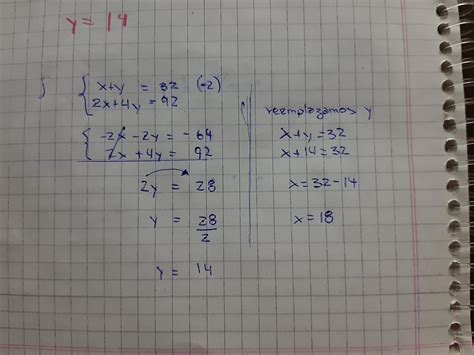 y = 14
j
x+y = 32 (-2)
2x+4y = 92
-2x -2y = -64
2x + 4y = 92
2y = 28
y = 28
2
y = 14
reemplazamos y
x+y=32
x+14=32
x=32-14
x=18